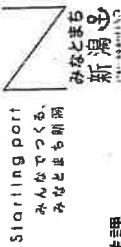 Starting port
みんなでつくる、
みなとまち新潟
みなとまち
新潟